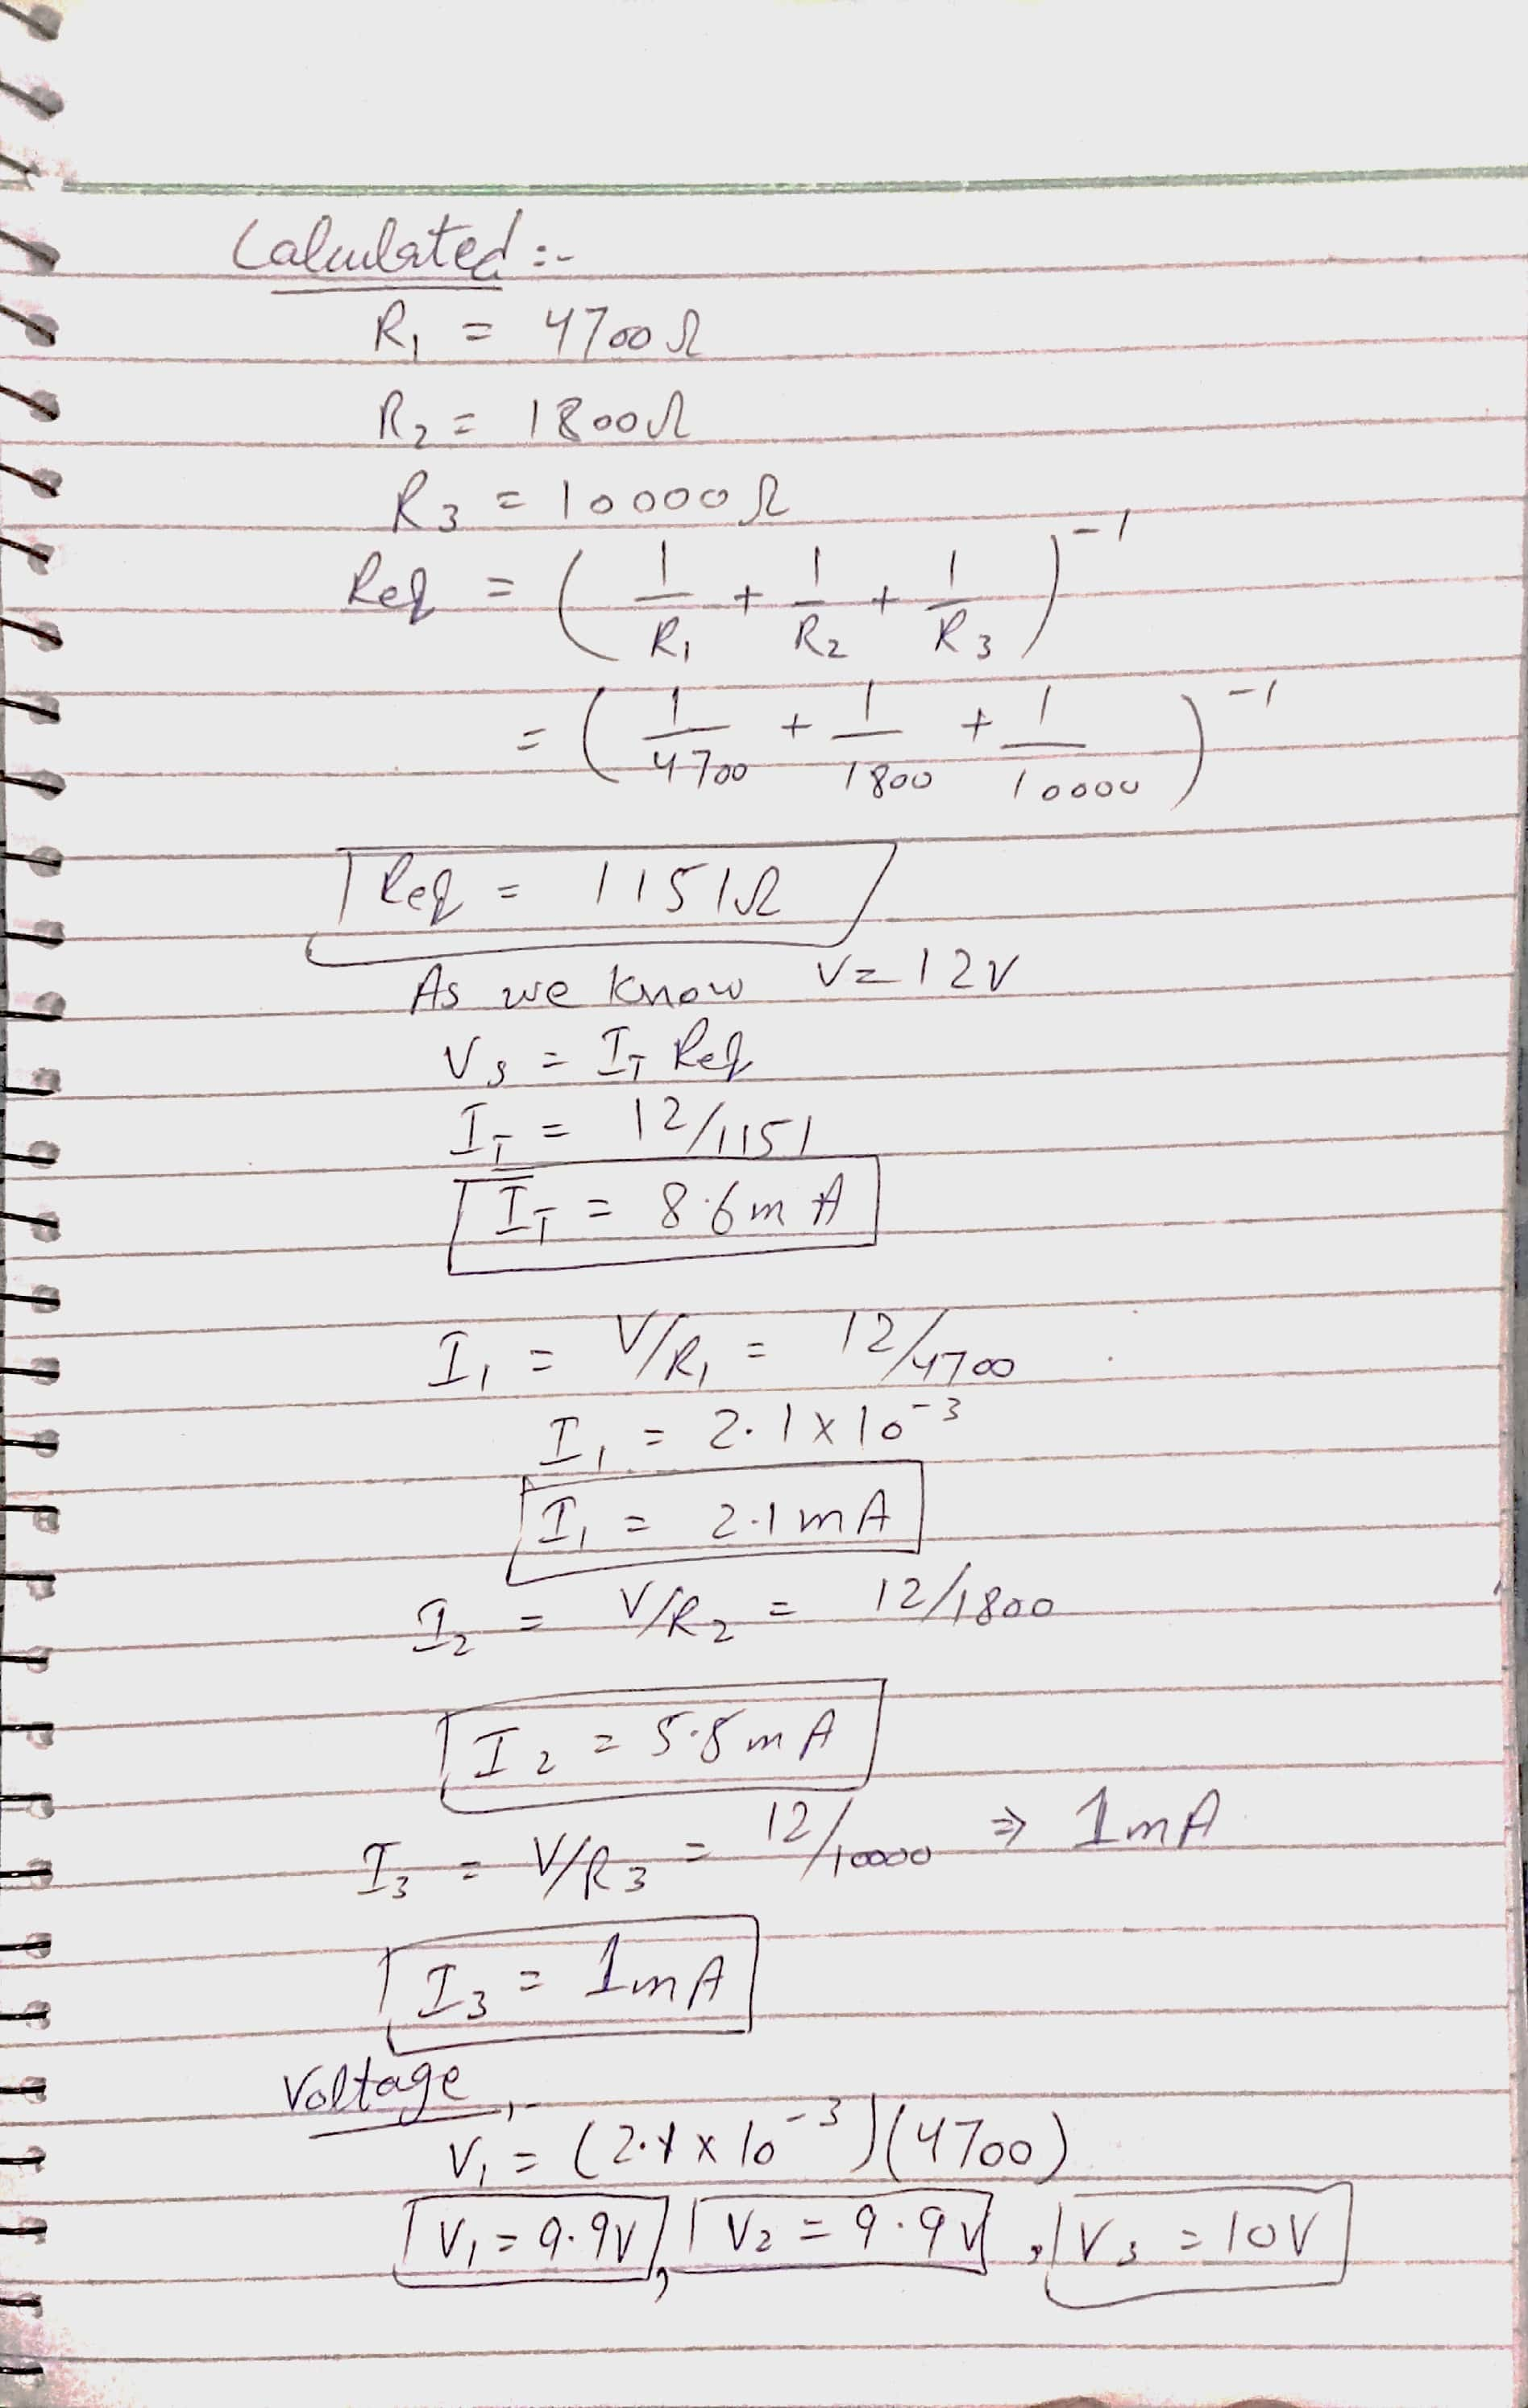 Calculated :-
R₁ = 4700Ω
R₂ = 1800Ω
R₃ = 10000Ω
Req = (1/R₁ + 1/R₂ + 1/R₃)⁻¹
= (1/4700 + 1/1800 + 1/10000)⁻¹
Req = 1151Ω
As we know V=12V
Vs = I_T Req
I_T = 12/1151
I_T = 8.6mA
I₁ = V/R₁ = 12/4700
I₁ = 2.1x10⁻³
I₁ = 2.1mA
I₂ = V/R₂ = 12/1800
I₂ = 5.5mA
I₃ = V/R₃ = 12/10000 ⇒ 1mA
I₃ = 1mA
Voltage :-
V₁ = (2.1x10⁻³)(4700)
V₁ = 9.9V, V₂ = 9.9V, V₃ = 10V